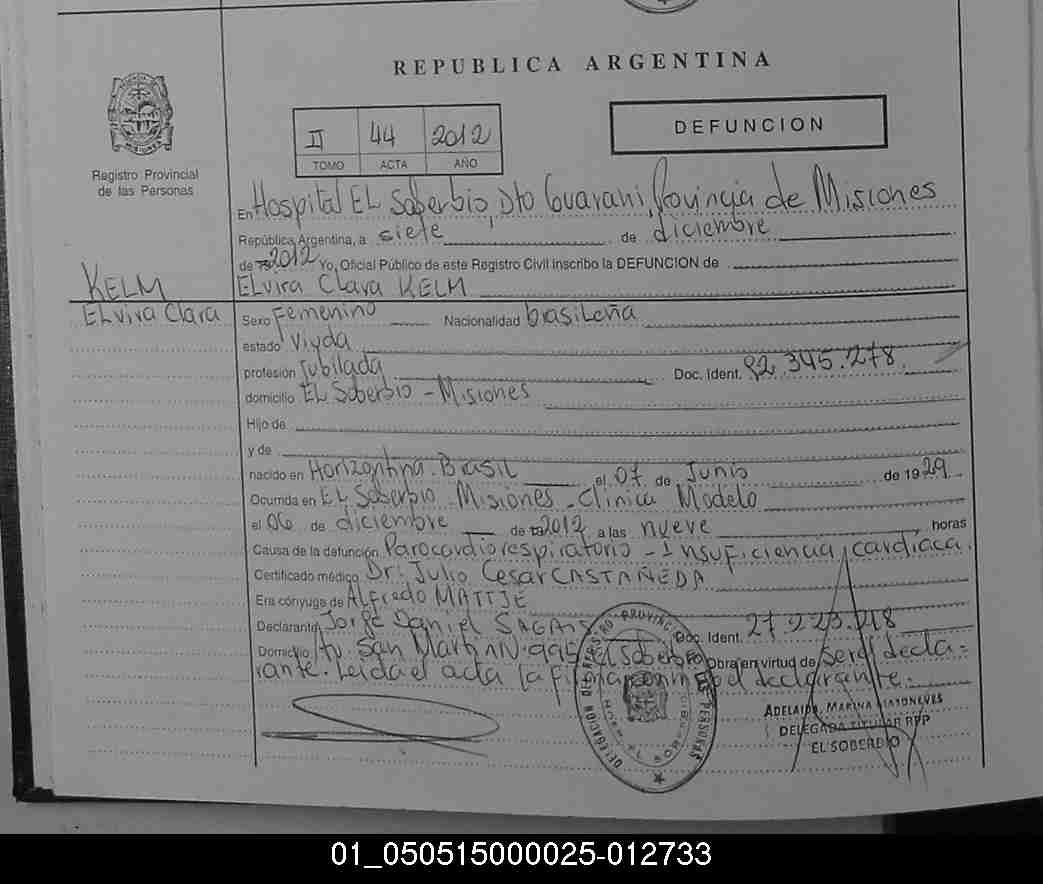 REPUBLICA ARGENTINA
II 44 2012
TOMO ACTA AÑO
DEFUNCION
Registro Provincial
de las Personas
En Hospital EL Soberbio, Dto Guarani, Provincia de Misiones
República Argentina, a siete de diciembre
de 2012 Yo, Oficial Público de este Registro Civil inscribo la DEFUNCION de
KELM
Elvira Clara
ELvira Clara KELM
Sexo Femenino Nacionalidad brasileña
estado Viuda
profesión Jubilada Doc. Ident. 92.345.278
domicilio EL Soberbio - Misiones
Hijo de
y de
nacido en Horizontina - Brasil el 07 de Junio de 1929
Ocurrida en EL Soberbio Misiones - Clinica Modelo
el 06 de diciembre de 2012 a las nueve horas
Causa de la defunción Parocardiorespiratorio - Insuficiencia cardiaca.
Certificado médico Dr: Julio Cesar CASTAÑEDA
Era cónyuge de Alfredo MATTJE
Declarante Jorge Daniel Doc. Ident.
Domicilio San Martin El Soberbio Obra en virtud de ser el decla=
rante. Leida el acta la firma conmigo el declarante.=
DELEGACION DEL REGISTRO PROVINCIAL DE LAS PERSONAS
ADELAIDA MARINA
DELEGADA TITULAR RPP
EL SOBERBIO
01_050515000025-012733